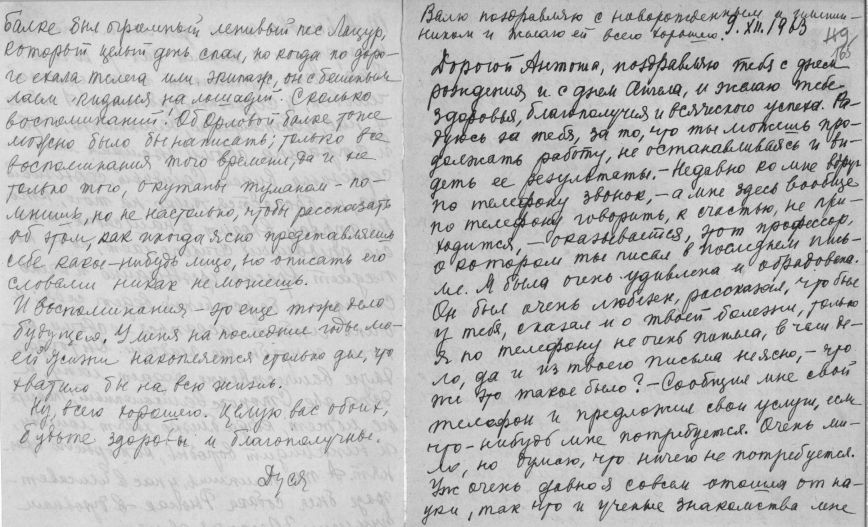 балке был огромный ленивый пес Лацур,
который целый день спал, но когда по доро-
ге ехала телега или экипаж, он с бешеным
лаем кидался на лошадей. Сколько
воспоминаний! Об Орловой балке тоже
можно было бы написать; только все
воспоминания того времени, да и не
только того, окутаны туманом – по-
мнишь, но не настолько, чтобы рассказать
об этом, как иногда ясно представляешь
себе какое-нибудь лицо, но описать его
словами никак не можешь.
И воспоминания – это еще тоже дело
будущего. У меня на последние годы мо-
ей жизни накопляется столько дел, что
хватило бы на всю жизнь.
Ну, всего хорошего. Целую вас обоих,
будьте здоровы и благополучны.
Дуся
Валю поздравляю с новорожденным и имени-
ником и желаю ей всего хорошего.
9.XII.1963
49
165
Дорогой Антоша, поздравляю тебя с днем
рождения и с днем Ангела, и желаю тебе
здоровья, благополучия и всяческого успеха. Ра-
дуюсь за тебя, за то, что ты можешь про-
должать работу, не останавливаясь и ви-
деть ее результаты. – Недавно ко мне вдруг
по телефону звонок, – а мне здесь вообще
по телефону говорить, к счастью, не при-
ходится, – оказывается, этот профессор,
о котором ты писал в последнем пись-
ме. Я была очень удивлена и обрадована.
Он был очень любезен, рассказал, что был
у тебя, сказал и о твоей болезни, только
я по телефону не очень поняла, в чем де-
ло, да и из твоего письма неясно, – что
же это такое было? – Сообщил мне свой
телефон и предложил свои услуги, если
что-нибудь мне потребуется. Очень ми-
ло, но думаю, что ничего не потребуется.
Уж очень давно я совсем отошла от на-
уки, так что и ученые знакомства мне